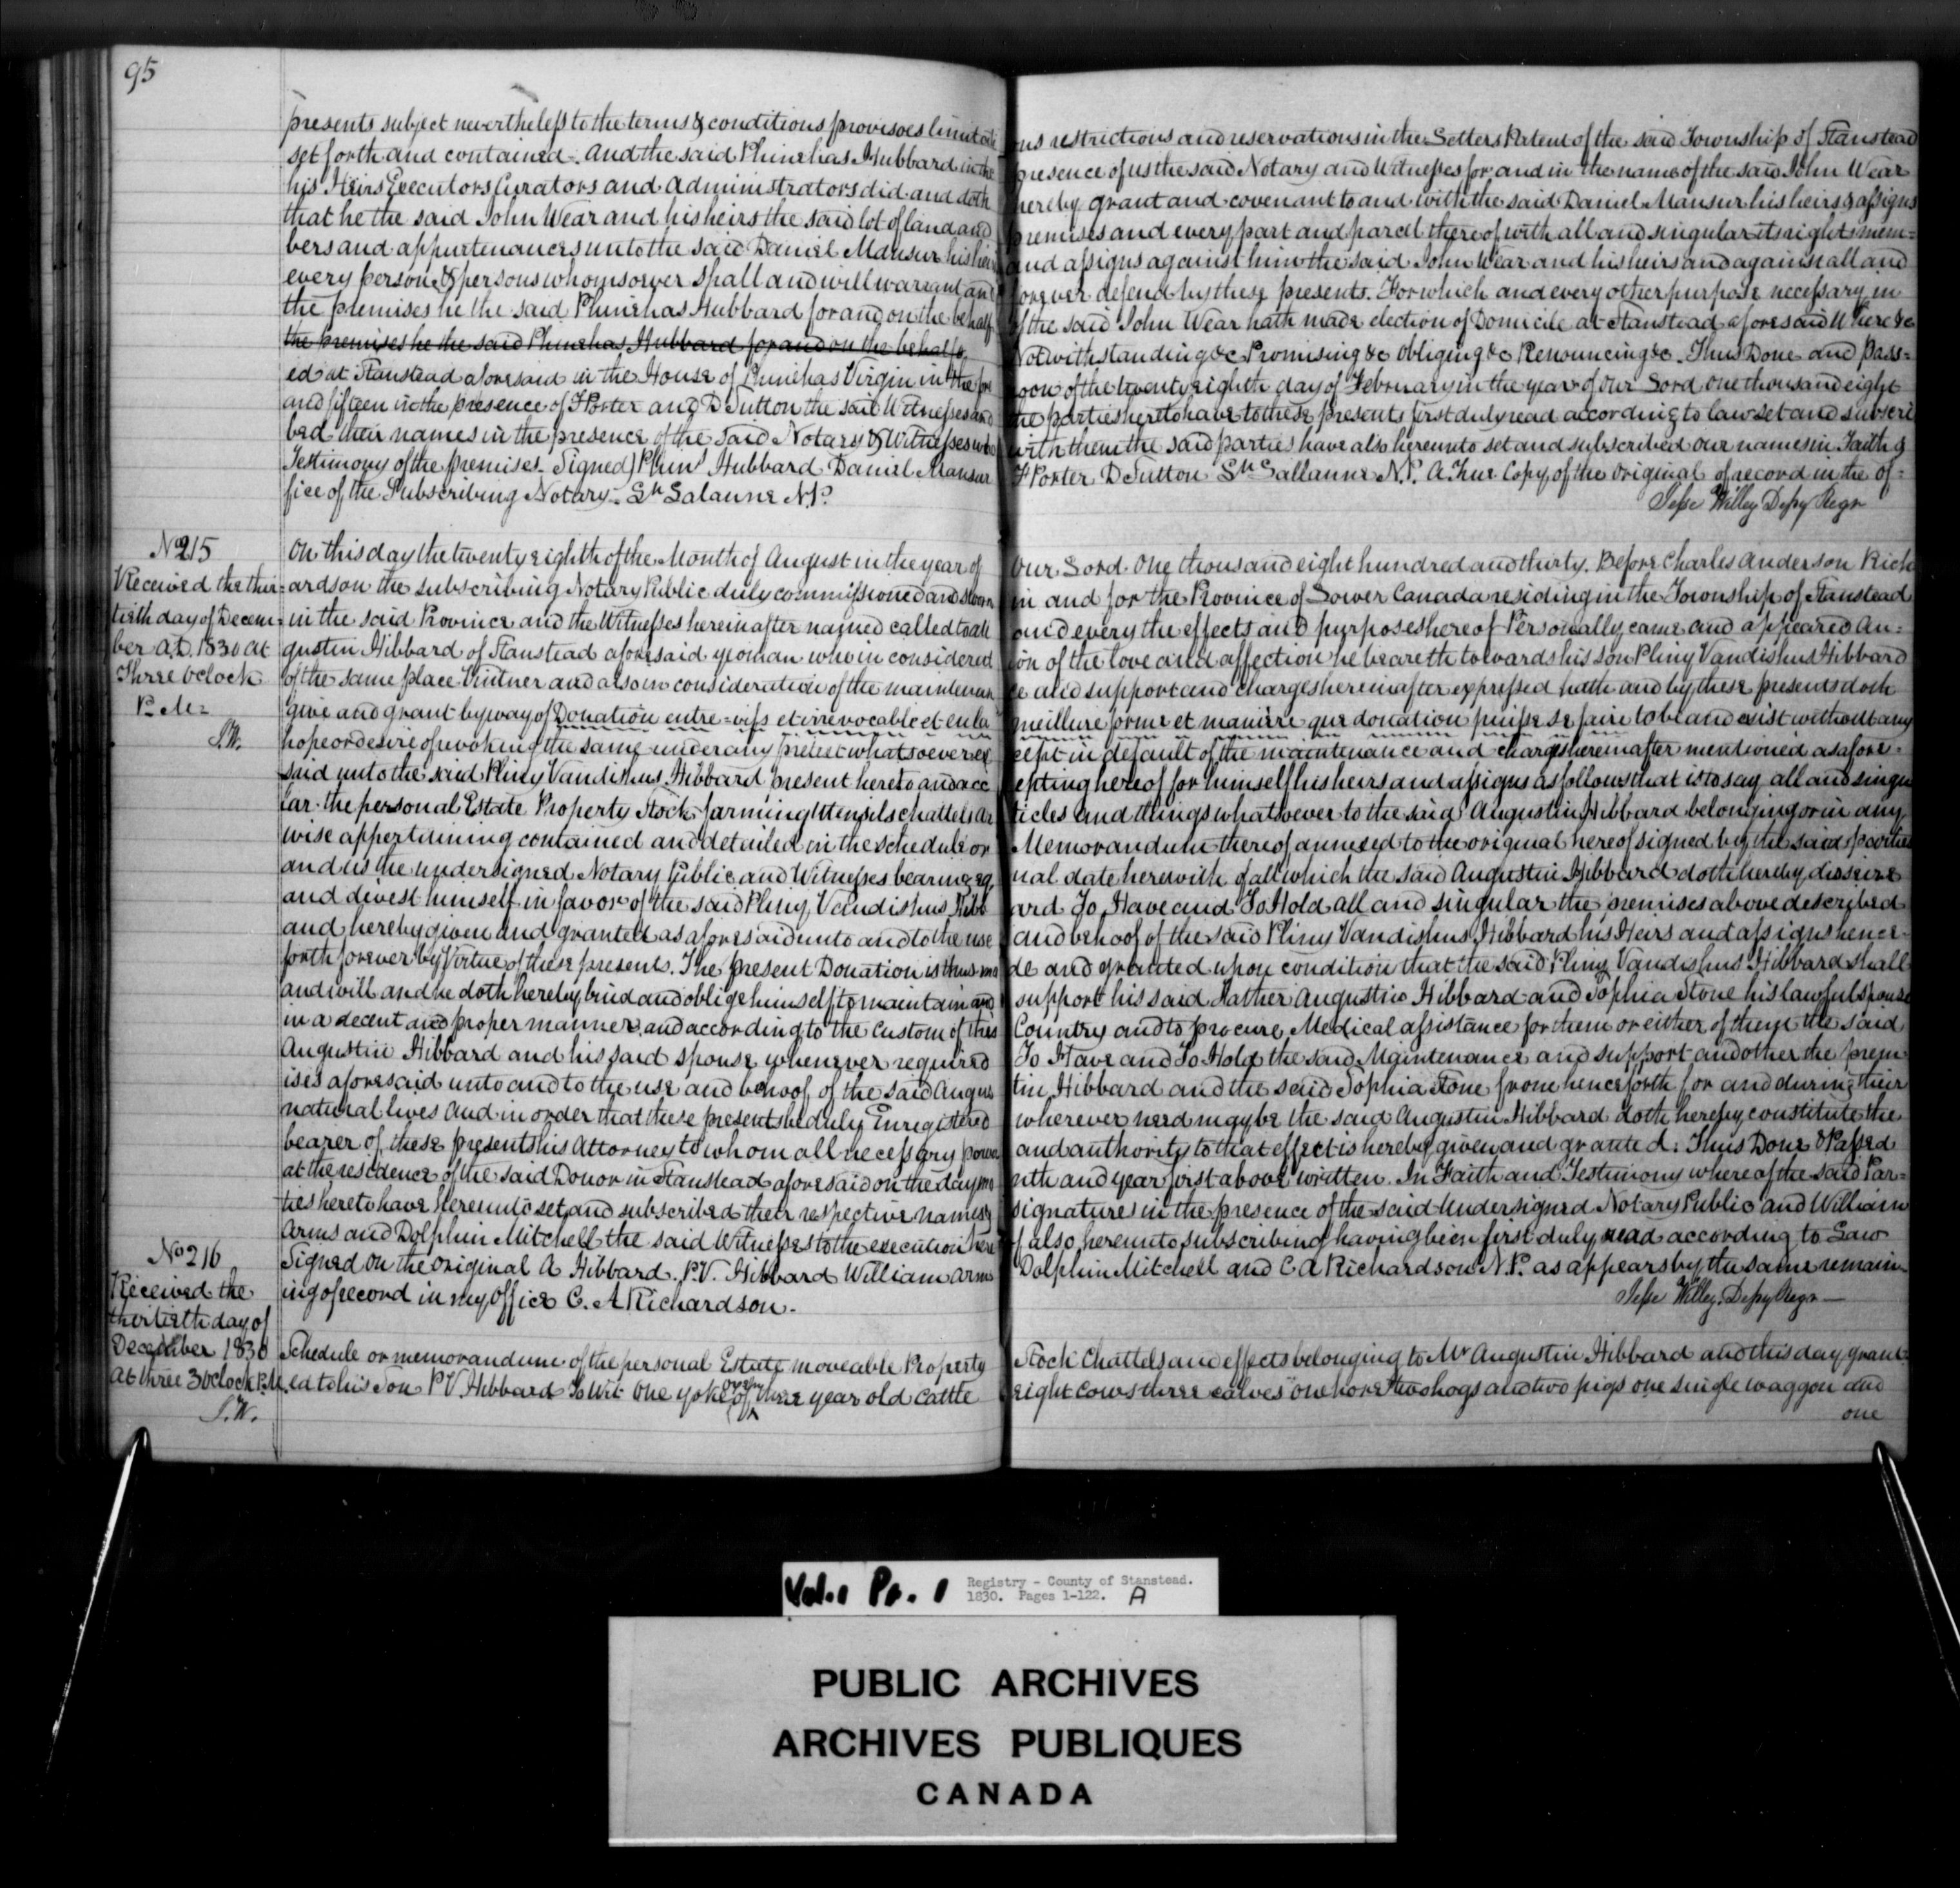 95
presents subject nevertheless to the terms & conditions provisoes limitations restrictions and reservations in the Letters Patent of the said Township of Stanstead
set forth and contained. And the said Phinehas Hubbard in the presence of us the said Notary and Witnesses for and in the name of the said John Wear
his Heirs Executors Curators and Administrators did and doth hereby grant and covenant to and with the said Daniel Mansur his heirs & assigns
that he the said John Wear and his heirs the said lot of land and premises and every part and parcel thereof with all and singular its rights mem=
bers and appurtenances unto the said Daniel Mansur his heirs and assigns against him the said John Wear and his heirs and against all and
every person & persons whomsoever shall and will warrant and forever defend by these presents. For which and every other purpose necessary in
the premises he the said Phinehas Hubbard for and on the behalf of the said John Wear hath made election of Domicile at Stanstead aforesaid Where &c
the premises he the said Phinehas Hubbard for and on the behalf of Notwithstanding &c Promising &c Obliging &c Renouncing &c. Thus Done and Pass=
ed at Stanstead aforesaid in the House of Phinehas Virgin in the fore noon of the twenty eighth day of February in the year of our Lord one thousand eight
and fifteen in the presence of F Porter and D Sutton the said Witnesses and the parties hereto have to these presents first duly read according to law set and subscri
bed their names in the presence of the said Notary & Witnesses who with them the said parties have also hereunto set and subscribed our names in Faith &
Testimony of the premises. Signed) Phins Hubbard Daniel Mansur F Porter D Sutton Ln Lallanne N.P. A True Copy of the Original of record in the of=
fice of the Subscribing Notary. Ln Lalanne N.P.
Jesse Willey Depy Regr
No 215
Received the thir=
tieth day of Decem=
ber A.D. 1830 at
Three O'clock
P. M.
J.W.
On this day the twenty eighth of the Month of August in the year of Our Lord One thousand eight hundred and thirty. Before Charles Anderson Rich
ardson the subscribing Notary Public duly commissioned and sworn in and for the Province of Lower Canada residing in the Township of Stanstead
in the said Province and the Witnesses hereinafter named called to all and every the effects and purposes hereof Personally came and appeared Au=
gustin Hibbard of Stanstead aforesaid yeoman who in considerat ion of the love and affection he beareth towards his son Pliny Vandishus Hibbard
of the same place Vintner and also in consideration of the maintenan ce and support and charges hereinafter expressed hath and by these presents doth
give and grant by way of Donation entre=vifs et irrevocable et en la meillure forme et manière que donation puisse se faire to be and exist without any
hope or desire of revoking the same under any pretext whatsoever ex cept in default of the maintenance and charges hereinafter mentioned as afore=
said unto the said Pliny Vandishus Hibbard present hereto and acc epting hereof for himself his heirs and assigns as follows that is to say all and singu
lar the personal Estate Property Stock farming Utensils chattels Ar ticles and things whatsoever to the said Augustin Hibbard belonging or in any
wise appertaining contained and detailed in the schedule or Memorandum thereof annexed to the original hereof signed by the said parties
and us the undersigned Notary Public and Witnesses bearing eq ual date herewith of all which the said Augustin Hibbard doth hereby disseize
and divest himself in favor of the said Pliny Vandishus Hibb ard To Have and To Hold all and singular the premises above described
and hereby given and granted as aforesaid unto and to the use and behoof of the said Pliny Vandishus Hibbard his Heirs and assigns hence=
forth forever by Virtue of these presents. The present Donation is thus ma de and granted upon condition that the said Pliny Vandishus Hibbard shall
and will and he doth hereby bind and oblige himself to maintain and support his said Father Augustin Hibbard and Sophia Stone his lawful spouse
in a decent and proper manner and according to the custom of this Country and to procure Medical assistance for them or either of them the said
Augustin Hibbard and his said spouse whenever required To Have and To Hold the said Maintenance and support and other the prem
ises aforesaid unto and to the use and behoof of the said Augus tin Hibbard and the said Sophia Stone from henceforth for and during their
natural lives And in order that these presents be duly Enregistered wherever need may be the said Augustin Hibbard doth hereby constitute the
bearer of these presents his Attorney to whom all necessary power and authority to that effect is hereby given and granted. Thus Done & Passed
at the residence of the said Donor in Stanstead aforesaid on the day mo nth and year first above written. In Faith and Testimony whereof the said Par=
ties hereto have hereunto set and subscribed their respective names & signatures in the presence of the said Undersigned Notary Public and William
Arms and Dolphin Mitchell the said Witnesses to the execution here of also hereunto subscribing having been first duly read according to Law
Signed on the original A Hibbard. P.V. Hibbard William Arms Dolphin Mitchell and C. A Richardson N.P. as appears by the same remain
ing of record in my Office C. A Richardson.
Jesse Willey. Depy Regr
No 216
Received the
thirtieth day of
December 1830
At three 3 Oclock P.M.
J.W.
Schedule or memorandum of the personal Estate moveable Property Stock Chattels and effects belonging to Mr Augustin Hibbard and this day grant
ed to his Son P.V. Hibbard To Wit One yoke of oxen three year old cattle eight cows three calves one horse two hogs and two pigs one single waggon and
one
Vol. 1 Pr. 1
Registry - County of Stanstead.
1830. Pages 1-122. A
PUBLIC ARCHIVES
ARCHIVES PUBLIQUES
CANADA